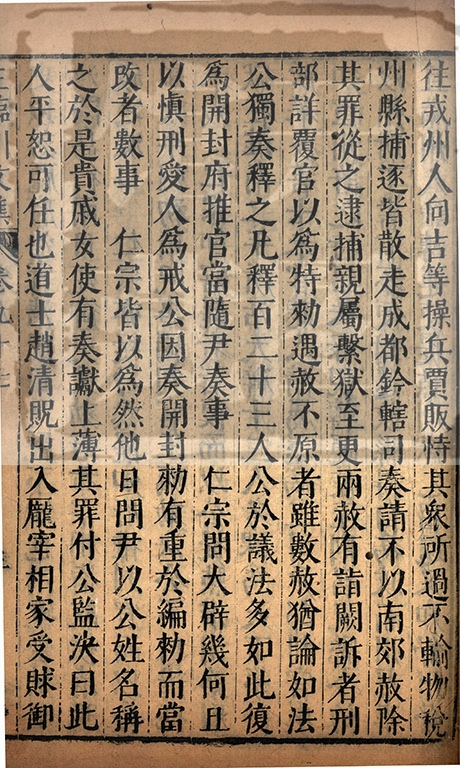 往戎州人向吉等操兵賈販恃其衆所過不輸物稅
州縣捕逐皆散走成都鈐轄司奏請不以南郊赦除
其罪從之逮捕親屬繫獄至更兩赦有詣闕訴者刑
部詳覆官以為特勑遇赦不原者雖數赦猶論如法
公獨奏釋之凡釋百二十三人公於議法多如此復
為開封府推官當隨尹奏事 仁宗問大辟幾何且
以慎刑愛人為戒公因奏開封勑有重於編勑而當
改者數事 仁宗皆以為然他日問尹以公姓名稱
之於是貴戚女使有奏讞上薄其罪付公監決曰此
人平恕可任也道士趙清貺出入龐宰相家受賕御